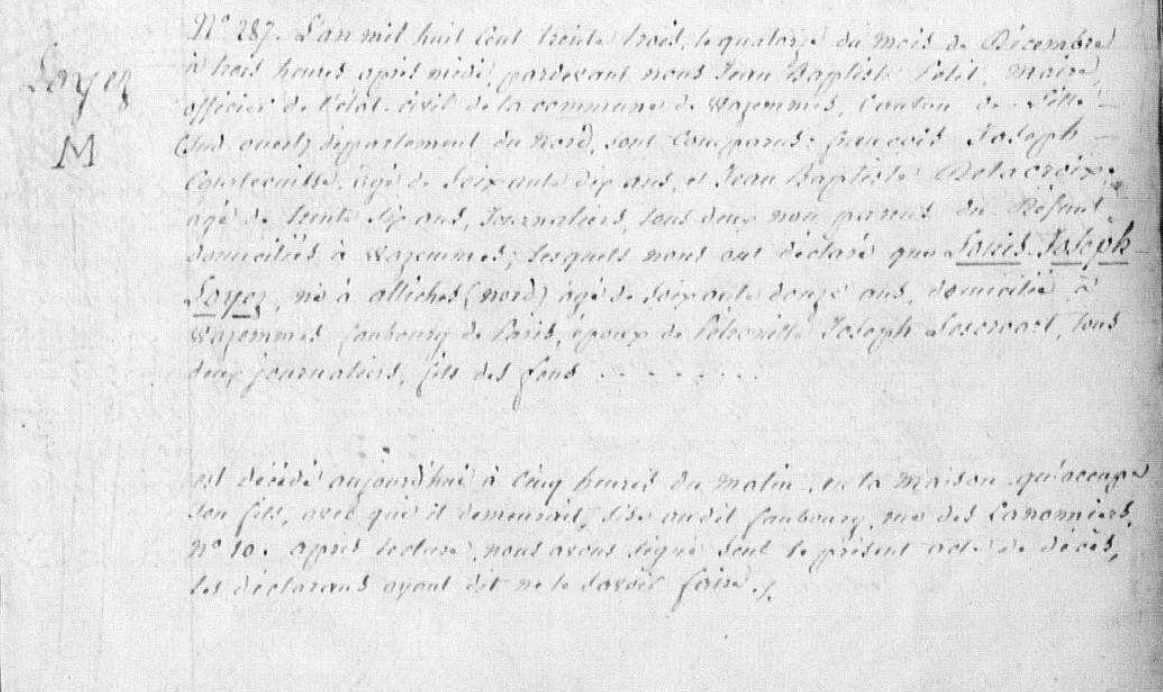 N° 287. L'an mil huit Cent trente trois, le quatorze du mois de Décembre
Loyez
à trois heures après midi, pardevant nous Jean Baptiste Petit, Maire,
officier de l'état-civil de la commune de Wazemmes, Canton de Lille
M
(Sud ouest) département du Nord, sont Comparus: françois Joseph
agé de Soixante dix ans, et Jean Baptiste Delacroix,
agé de trente six ans, Journaliers, tous deux non parens du Défunt,
domiciliés à Wazemmes; lesquels nous ont déclaré que Louis Joseph
Loyez, né à attiches (nord) agé de soixante douze ans, domicilié à
Wazemmes faubourg de Paris, époux de Joseph, tous
deux journaliers, fils des feus
est décédé aujourd'hui à Cinq heures du matin, en la maison qu'occupe
son fils, avec qui il demeurait, sise audit faubourg, rue des Canonniers,
N° 10. après lecture, nous avons signé seul le présent acte de décès,
les déclarans ayant dit ne le savoir faire ./.